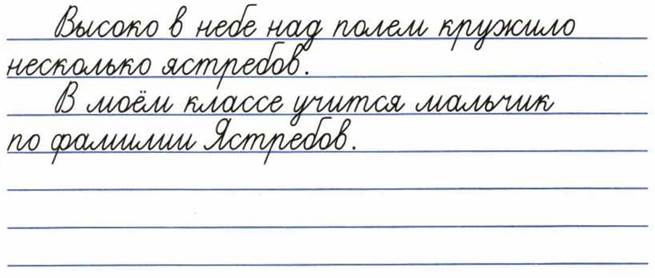 Высоко в небе над полем кружило
несколько ястребов.
В моём классе учится мальчик
по фамилии Ястребов.